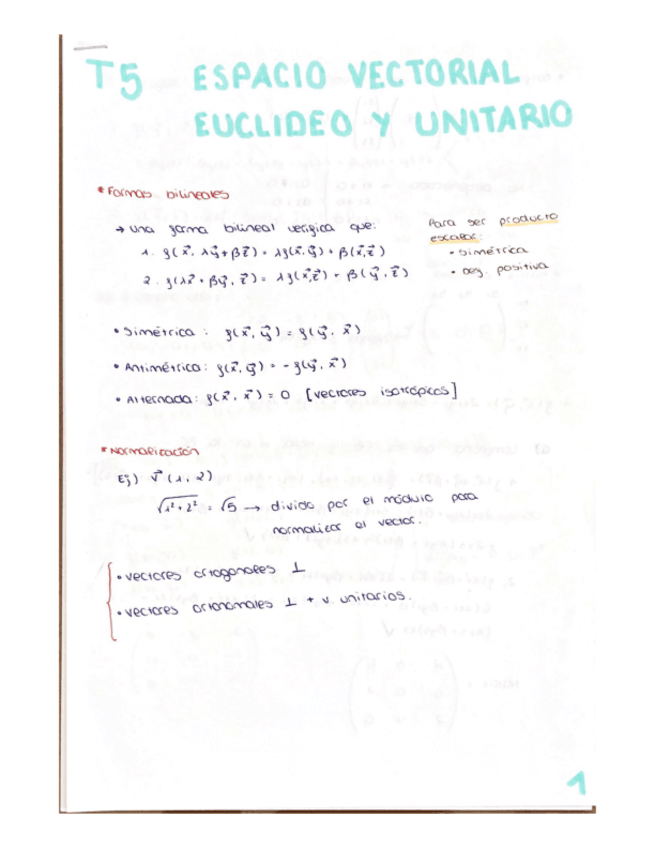 T5 ESPACIO VECTORIAL
EUCLIDEO Y UNITARIO
* Formas bilineales
→ una forma bilineal verifica que:
1. f(x⃗, λy⃗+βz⃗) = λf(x⃗,y⃗) + β(x⃗,z⃗)
2. f(λx⃗ + βy⃗, z⃗) = λf(x⃗,z⃗) + β(y⃗,z⃗)
Para ser producto
escalar:
• Simétrica
• Def. positiva
• Simétrica: f(x⃗, y⃗) = f(y⃗, x⃗)
• Antimétrica: f(x⃗, y⃗) = -f(y⃗, x⃗)
• Alternada: f(x⃗, x⃗) = 0 [vectores isotrópicos]
* Normalización
Ej) v⃗ (1, 2)
√1²+2² = √5 → divido por el módulo para
normalizar el vector.
• vectores ortogonales ⊥
• vectores ortonormales ⊥ + v. unitarios.
1